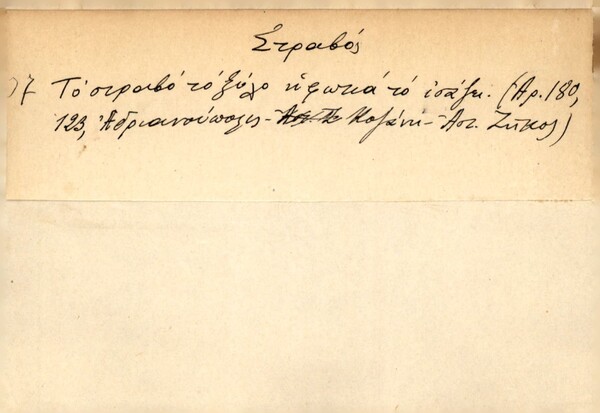 Στραβός
Τὸ στραβὸ τὸ ξύλο ἡ φωτιὰ τὸ ἰσάζει. (Ἀρ. 180,
123, Ἀδριανούπολις - Κοζάνη - Ἀστ. Ζήκος)